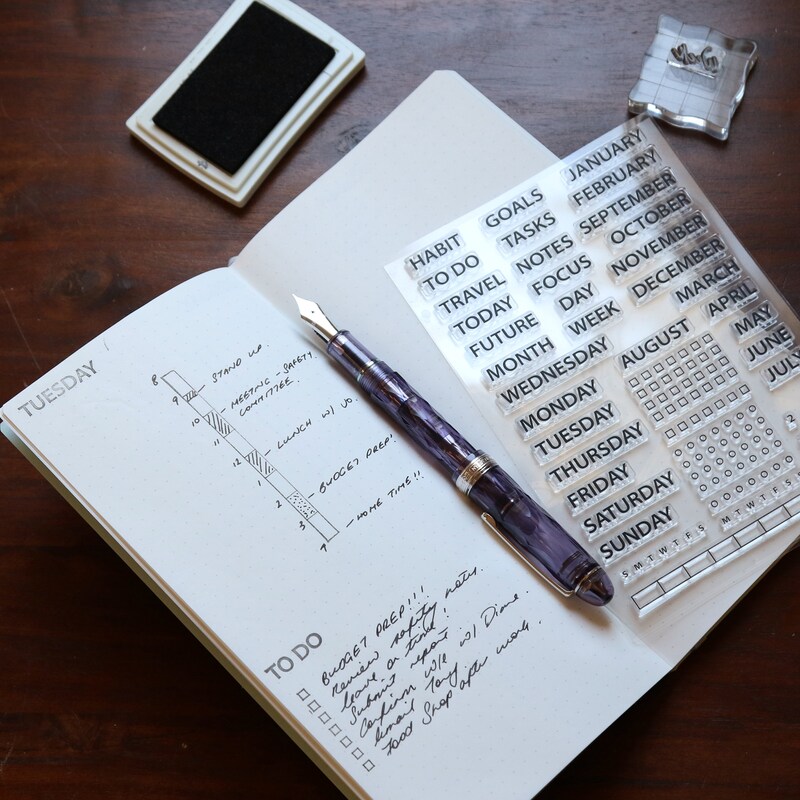 TUESDAY
8
9
10
11
12
1
2
3
STAND UP.
MEETING - SAFETY
COMMITTEE.
LUNCH W/
BUDGET PREP!
HOME TIME!!
TO DO
BUDGET PREP!!!
Review safety notes.
leave on time!
Submit report.
Confirm w/e w/ Diane.
Email Tony
Food Shop after work.
HABIT
TO DO
TRAVEL
TODAY
FUTURE
MONTH
WEDNESDAY
MONDAY
TUESDAY
THURSDAY
FRIDAY
SATURDAY
SUNDAY
S M T W T F S
GOALS
TASKS
NOTES
FOCUS
DAY
WEEK
JANUARY
FEBRUARY
SEPTEMBER
OCTOBER
NOVEMBER
DECEMBER
MARCH
APRIL
MAY
JUNE
JULY
AUGUST
2
M T W T F S